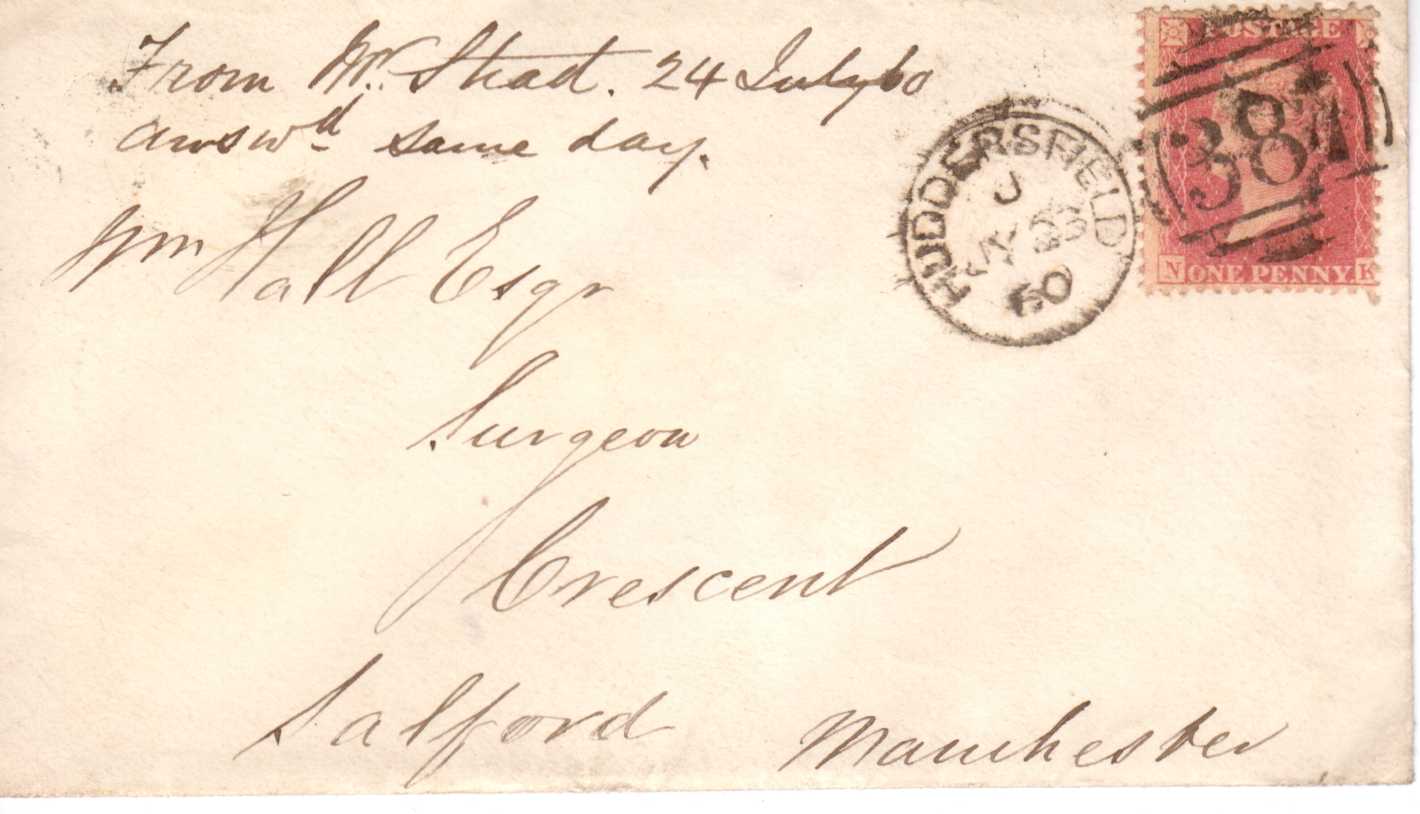 From Mr. Stead. 24 July 60
answd same day.
Wm Hall Esqr
Surgeon
Crescent
Salford Manchester
HUDDERSFIELD
J
JY 23
60
POSTAGE
387
N ONE PENNY K